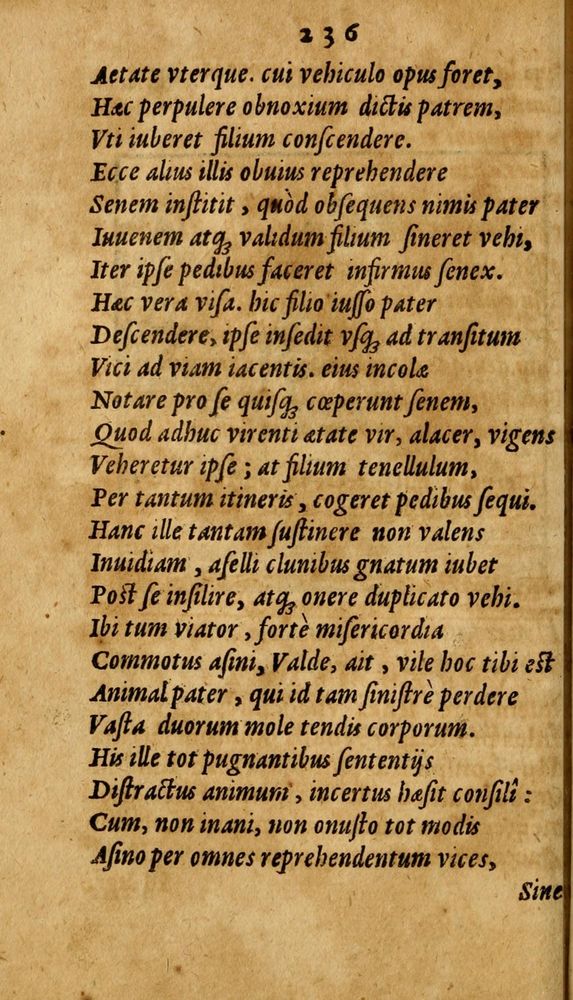 236
Aetate vterque. cui vehiculo opus foret,
Hæc perpulere obnoxium dictis patrem,
Vti iuberet filium conſcendere.
Ecce alius illis obuius reprehendere
Senem inſtitit, quòd obſequens nimis pater
Iuuenem atq; validum filium ſineret vehi,
Iter ipſe pedibus faceret infirmus ſenex.
Hæc vera viſa. hic filio iuſſo pater
Deſcendere, ipſe inſedit vſq; ad tranſitum
Vici ad viam iacentis. eius incolæ
Notare pro ſe quiſq; cœperunt ſenem,
Quod adhuc virenti ætate vir, alacer, vigens
Veheretur ipſe; at filium tenellulum,
Per tantum itineris, cogeret pedibus ſequi.
Hanc ille tantam ſuſtinere non valens
Inuidiam, aſelli clunibus gnatum iubet
Poſt ſe inſilire, atq; onere duplicato vehi.
Ibi tum viator, fortè miſericordia
Commotus aſini, Valde, ait, vile hoc tibi eſt
Animal pater, qui id tam ſiniſtrè perdere
Vaſta duorum mole tendis corporum.
His ille tot pugnantibus ſententijs
Diſtractus animum, incertus hæſit conſilî:
Cum, non inani, non onuſto tot modis
Aſino per omnes reprehendentum vices,
Sine